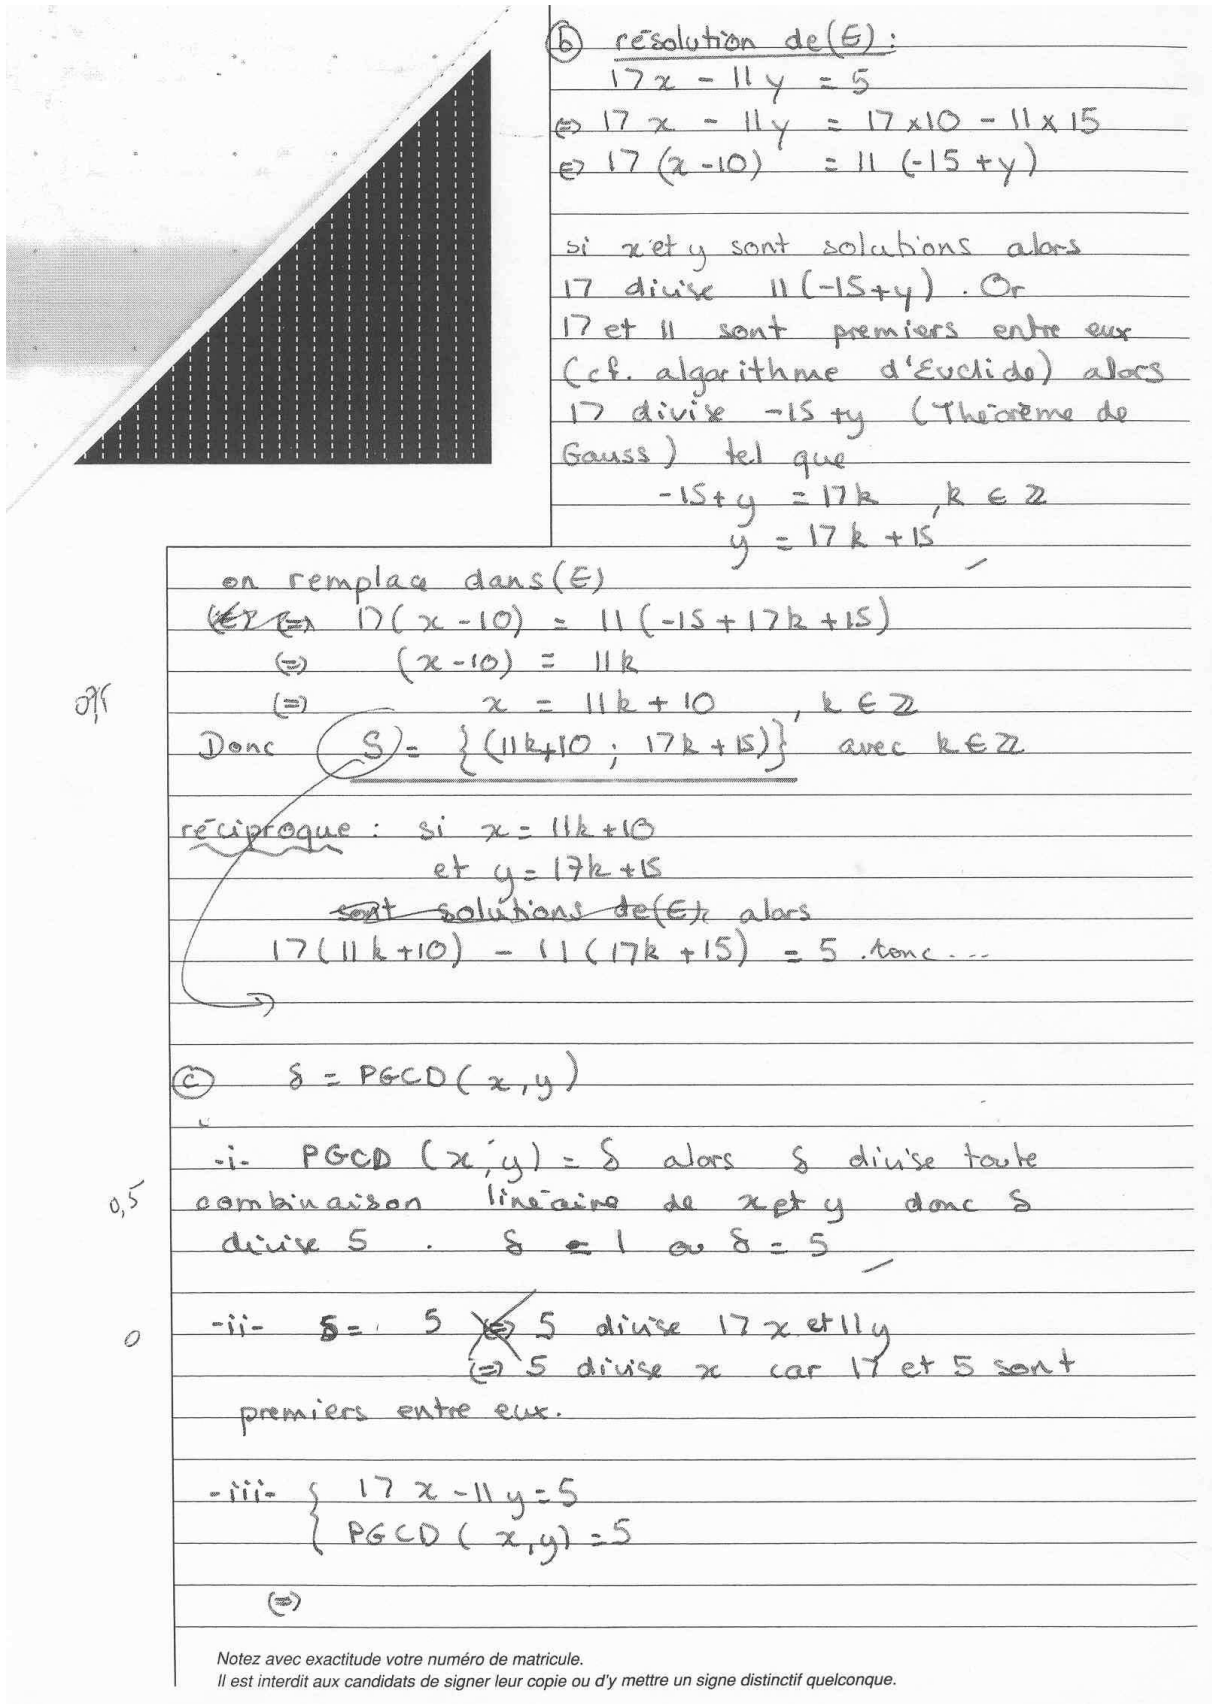 (b) résolution de (E) :
17x - 11y = 5
⇔ 17x - 11y = 17×10 - 11×15
⇔ 17(x-10) = 11(-15+y)
si x et y sont solutions alors
17 divise 11(-15+y). Or
17 et 11 sont premiers entre eux
(cf. algorithme d'Euclide) alors
17 divise -15+y (Théorème de
Gauss) tel que
-15+y = 17k , k ∈ ℤ
y = 17k + 15
on remplace dans (E)
⇔ 17(x-10) = 11(-15+17k+15)
⇔ (x-10) = 11k
⇔ x = 11k + 10 , k ∈ ℤ
Donc S = {(11k+10 ; 17k+15)} avec k ∈ ℤ
réciproque : si x = 11k+10
et y = 17k+15
sont solutions de (E), alors
17(11k+10) - 11(17k+15) = 5 . donc ...
(c) δ = PGCD(x,y)
-i- PGCD(x,y) = δ alors δ divise toute
0,5 combinaison linéaire de x et y donc δ
divise 5 . δ = 1 ou δ = 5
0 -ii- δ = 5 ⇔ 5 divise 17x et 11y
⇔ 5 divise x car 17 et 5 sont
premiers entre eux.
-iii- { 17x - 11y = 5
PGCD(x,y) = 5
⇔
Notez avec exactitude votre numéro de matricule.
Il est interdit aux candidats de signer leur copie ou d'y mettre un signe distinctif quelconque.